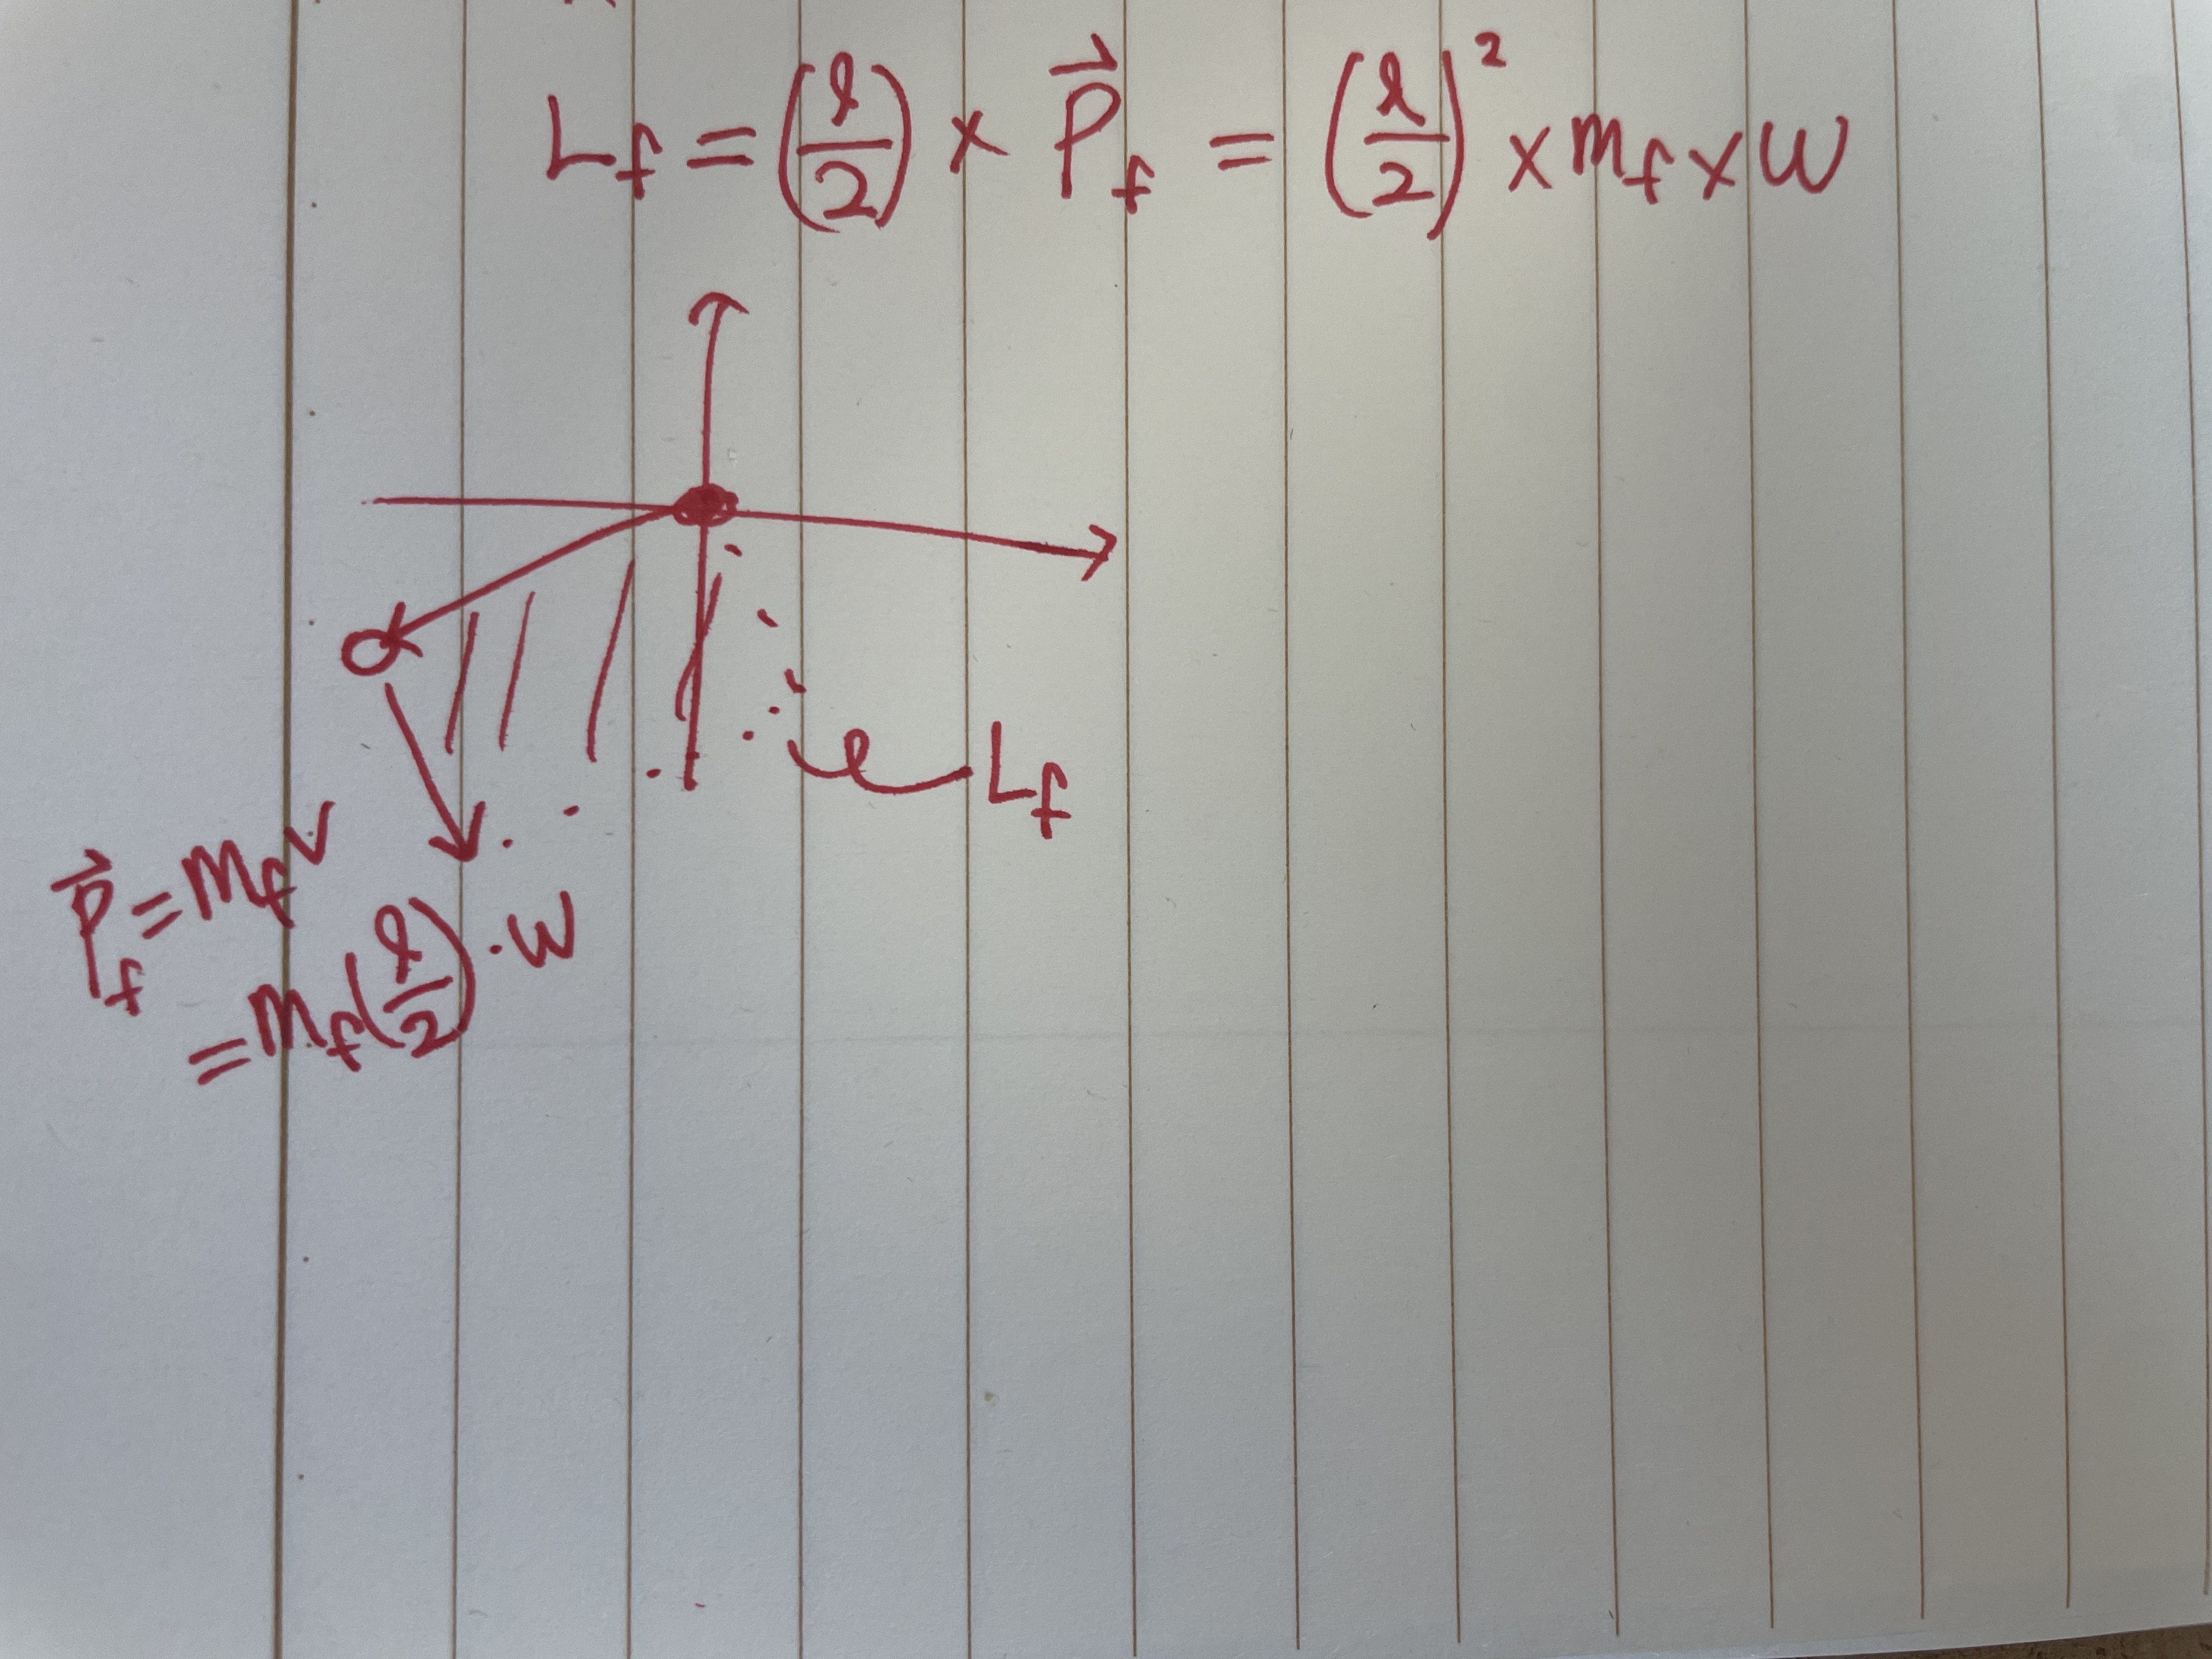 L_f = (l/2) × P⃗_f = (l/2)² × m_f × W
L_f
P⃗_f = m_f V
= m_f (l/2) · W